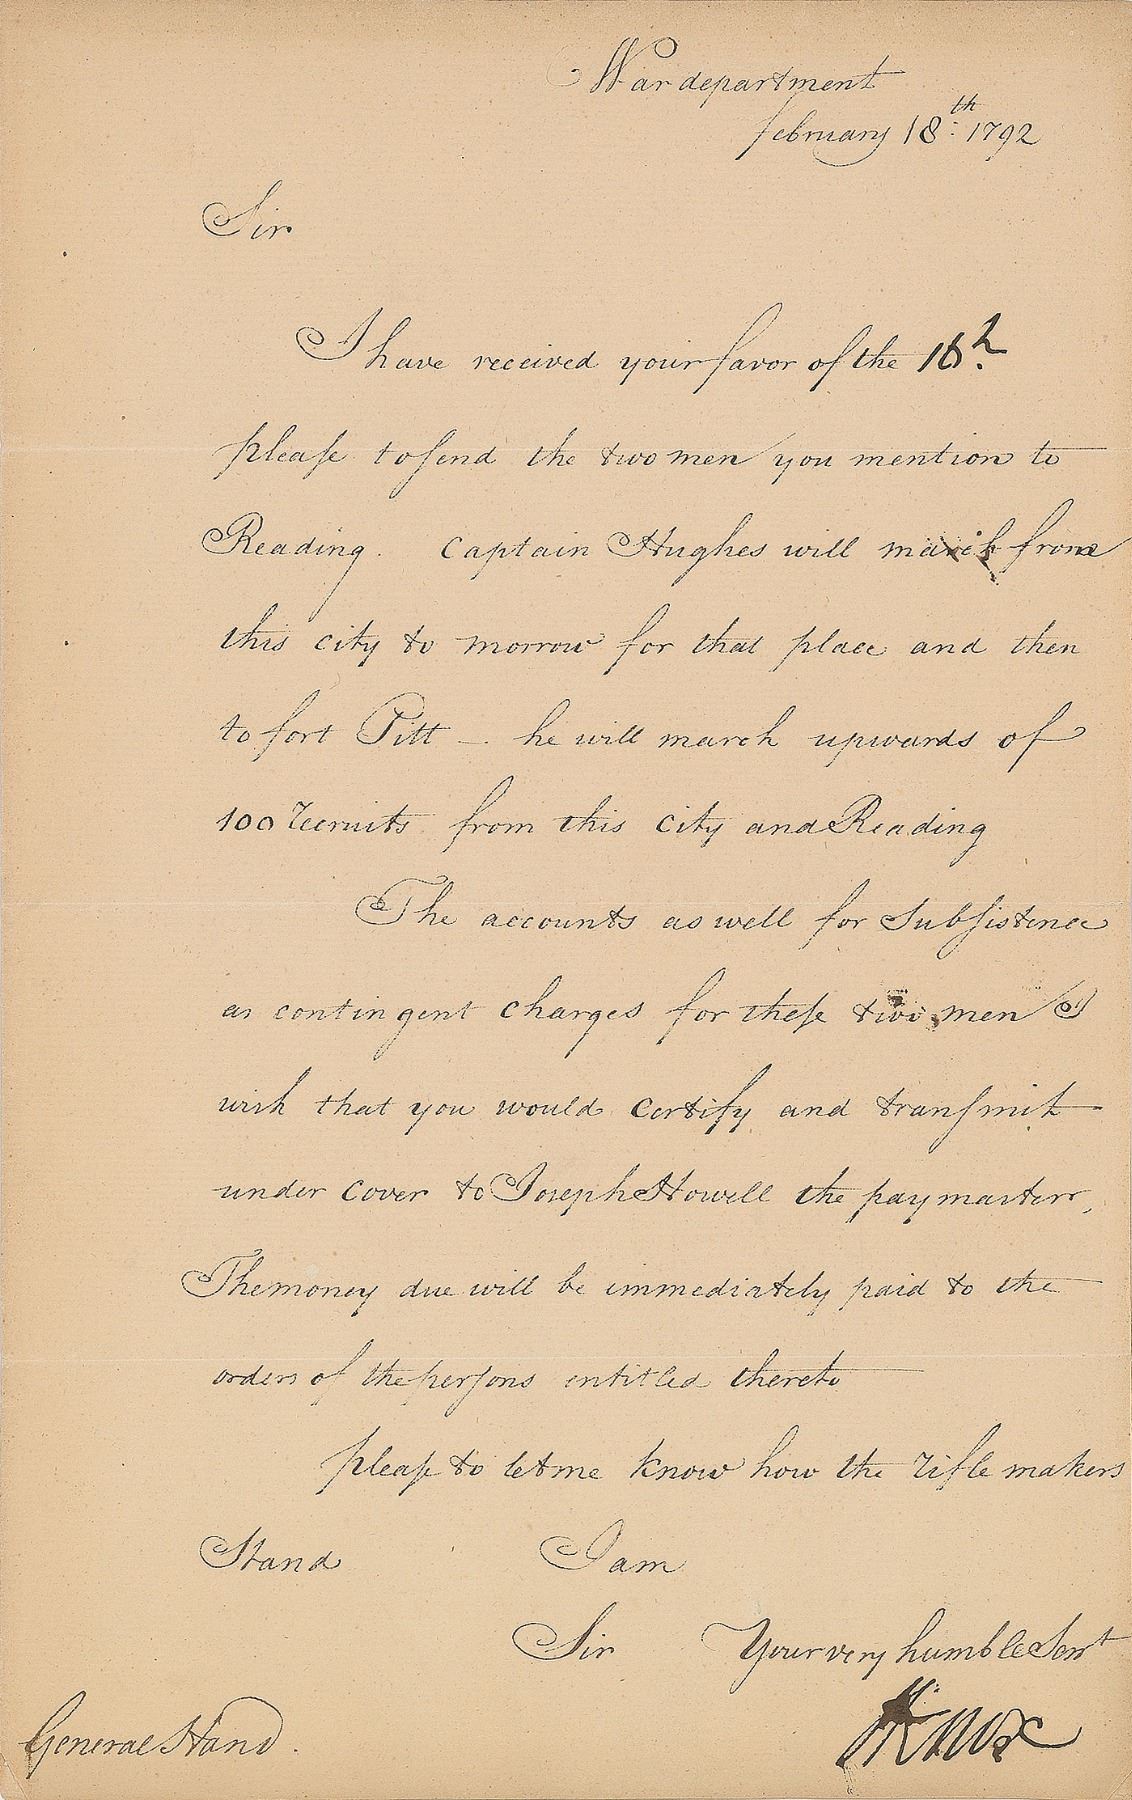 War department
february 18th: 1792
Sir
I have received your favor of the 16h.
please to send the two men you mention to
Reading. Captain Hughes will march from
this city to morrow for that place and then
to fort Pitt – he will march upwards of
100 recruits from this city and Reading
The accounts as well for Subsistence
as contingent charges for these two men I
wish that you would certify and transmit
under cover to Joseph Howell the paymaster,
The money due will be immediately paid to the
orders of the persons entitled thereto
please to let me know how the rifle makers
Stand I am
Sir Your very humble Servt
HKnox
General Hand.